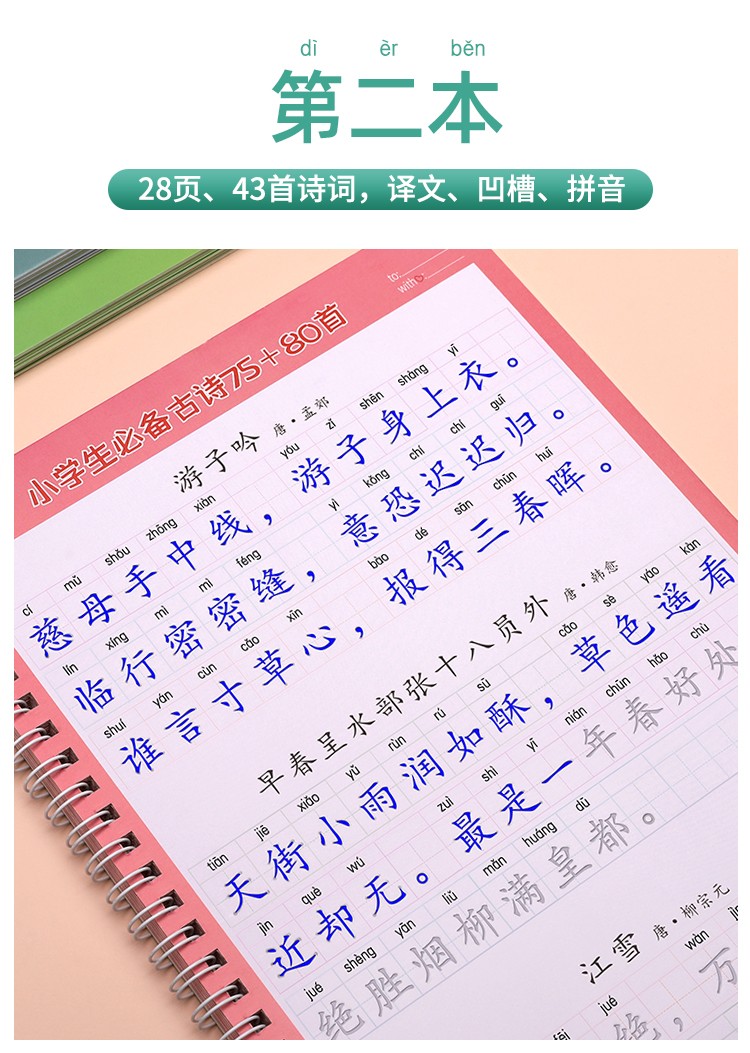 dì èr běn
第二本
28页、43首诗词，译文、凹槽、拼音
to:
with:
小学生必备古诗75+80首
游子吟 唐·孟郊
cí mǔ shǒu zhōng xiàn yóu zǐ shēn shàng yī
慈母手中线，游子身上衣。
lín xíng mì mì féng yì kǒng chí chí guī
临行密密缝，意恐迟迟归。
shuí yán cùn cǎo xīn bào dé sān chūn huī
谁言寸草心，报得三春晖。
早春呈水部张十八员外 唐·韩愈
tiān jiē xiǎo yǔ rùn rú sū cǎo sè yáo kàn
天街小雨润如酥，草色遥看
jìn què wú zuì shì yī nián chūn hǎo chù
近却无。最是一年春好处
jué shèng yān liǔ mǎn huáng dū
绝胜烟柳满皇都。
江雪 唐·柳宗元
jué wàn
绝，万